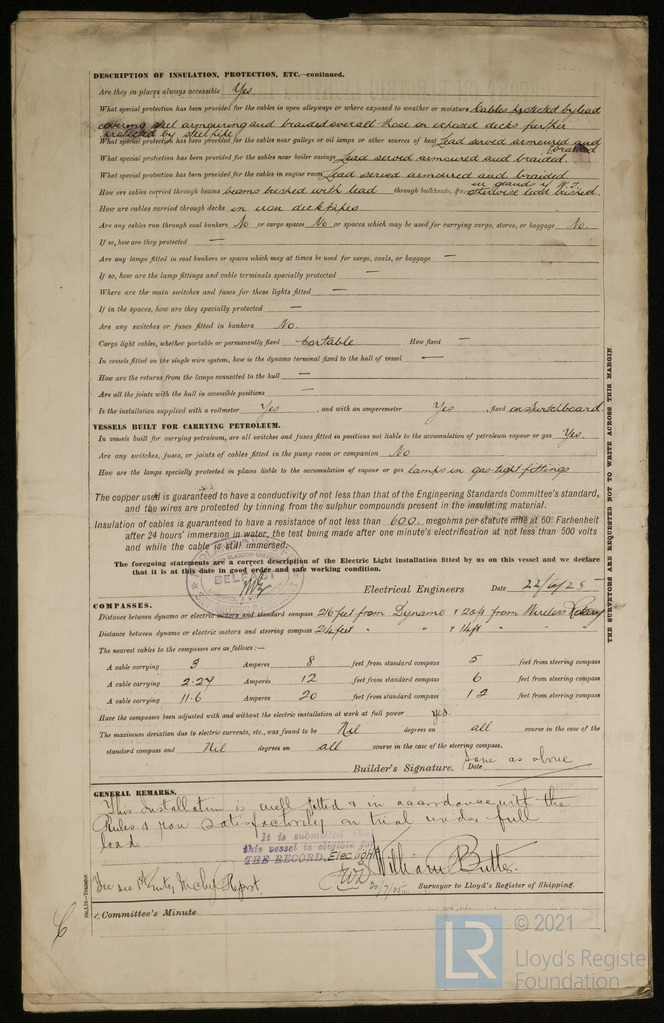 DESCRIPTION OF INSULATION, PROTECTION, ETC.—continued.
Are they in places always accessible Yes
What special protection has been provided for the cables in open alleyways or where exposed to weather or moisture Cables protected by lead
covering steel armouring and braided overall those on exposed decks further
protected by steel pipe
What special protection has been provided for the cables near galleys or oil lamps or other sources of heat Lead served armoured and
braided
What special protection has been provided for the cables near boiler casings Lead served armoured and braided.
What special protection has been provided for the cables in engine room Lead served armoured and braided
How are cables carried through beams beams bushed with lead through bulkheads, &c. in glands if W.T.
otherwise lead bushed
How are cables carried through decks in iron deckpipes
Are any cables run through coal bunkers No or cargo spaces No or spaces which may be used for carrying cargo, stores, or baggage No
If so, how are they protected —
Are any lamps fitted in coal bunkers or spaces which may at times be used for cargo, coals, or baggage —
If so, how are the lamp fittings and cable terminals specially protected —
Where are the main switches and fuses for these lights fitted —
If in the spaces, how are they specially protected —
Are any switches or fuses fitted in bunkers No.
Cargo light cables, whether portable or permanently fixed Portable How fixed —
In vessels fitted on the single wire system, how is the dynamo terminal fixed to the hull of vessel —
How are the returns from the lamps connected to the hull —
Are all the joints with the hull in accessible positions —
Is the installation supplied with a voltmeter Yes , and with an amperemeter Yes , fixed on Switchboard.
VESSELS BUILT FOR CARRYING PETROLEUM.
In vessels built for carrying petroleum, are all switches and fuses fitted in positions not liable to the accumulation of petroleum vapour or gas Yes.
Are any switches, fuses, or joints of cables fitted in the pump room or companion No
How are the lamps specially protected in places liable to the accumulation of vapour or gas lamps in gas-tight fittings
The copper used is guaranteed to have a conductivity of not less than that of the Engineering Standards Committee's standard,
and the wires are protected by tinning from the sulphur compounds present in the insulating material.
Insulation of cables is guaranteed to have a resistance of not less than 600 megohms per statute mile at 60° Farhenheit
after 24 hours' immersion in water, the test being made after one minute's electrification at not less than 500 volts
and while the cable is still immersed.
The foregoing statements are a correct description of the Electric Light installation fitted by us on this vessel and we declare
that it is at this date in good order and safe working condition.
BELFAST
Electrical Engineers Date 22/6/25
COMPASSES.
Distance between dynamo or electric motors and standard compass 216 feet from Dynamo & 20ft from Wireless Rotary
Distance between dynamo or electric motors and steering compass 214 feet " " & 14ft " "
The nearest cables to the compasses are as follows:—
A cable carrying 3 Amperes 8 feet from standard compass 5 feet from steering compass
A cable carrying 2.27 Amperes 12 feet from standard compass 6 feet from steering compass
A cable carrying 11.6 Amperes 20 feet from standard compass 12 feet from steering compass
Have the compasses been adjusted with and without the electric installation at work at full power yes.
The maximum deviation due to electric currents, etc., was found to be Nil degrees on all course in the case of the
standard compass and Nil degrees on all course in the case of the steering compass.
Builder's Signature. Date same as above
GENERAL REMARKS.
This Installation is well fitted & in accordance with the
Rules & ran satisfactorily on trial under full
load.
It is submitted that
this vessel is eligible for
THE RECORD. Elec. light
20/7/25
William Butler.
Surveyor to Lloyd's Register of Shipping.
Report.
Committee's Minute
THE SURVEYORS ARE REQUESTED NOT TO WRITE ACROSS THIS MARGIN
LR
© 2021
Lloyd's Register
Foundation